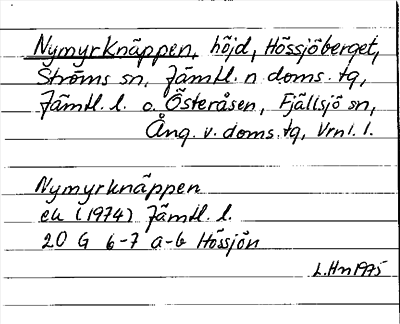 Nymyrknäppen, höjd, Hössjöberget,
Ströms sn, Jämtl. n doms. tg,
Jämtl. l. o. Österåsen, Fjällsjö sn,
Ång. v. doms. tg, Vrnl. l.
Nymyrknäppen
ek (1974) Jämtl. l.
20 G 6-7 a-b Hössjön
L. Hn 1975